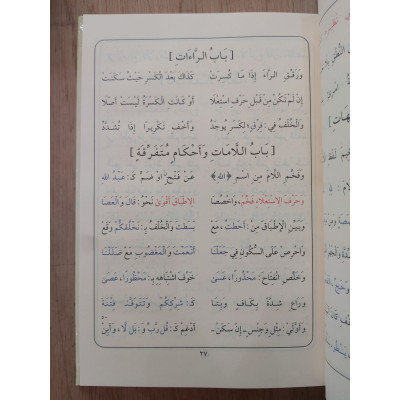 [ بَابُ الرَّاءَاتِ ]
وَرَقِّقِ الرَّاءَ إِذَا مَا كُسِرَتْ كَذَاكَ بَعْدَ الْكَسْرِ حَيْثُ سَكَنَتْ
إِنْ لَمْ تَكُنْ مِنْ قَبْلِ حَرْفِ اسْتِعْلَا أَوْ كَانَتِ الْكَسْرَةُ لَيْسَتْ أَصْلَا
وَالْخُلْفُ فِي: فِرْقٍ؛ لِكَسْرٍ يُوجَدُ وَأَخْفِ تَكْرِيرًا إِذَا تُشَدَّدُ
[ بَابُ اللَّامَاتِ وَأَحْكَامٍ مُتَفَرِّقَةٍ ]
وَفَخِّمِ اللَّامَ مِنِ اسْمِ ﴿اللهِ﴾ عَنْ فَتْحٍ اوْ ضَمٍّ كَـ: عَبْدُ اللهِ
وَحَرْفَ الِاسْتِعْلَاءِ فَخِّمْ، وَاخْصُصَا الِاطْبَاقَ أَقْوَى نَحْوُ: قَالَ وَالْعَصَا
وَبَيِّنِ الْإِطْبَاقَ مِنْ: أَحَطتُّ، مَعْ بَسَطتَ، وَالْخُلْفُ بِـ: نَخْلُقكُّمْ وَقَعْ
وَاحْرِصْ عَلَى السُّكُونِ فِي جَعَلْنَا أَنْعَمْتَ وَالْمَغْضُوبِ مَعْ ضَلَلْنَا
وَخَلِّصِ انْفِتَاحَ: مَحْذُورًا، عَسَى خَوْفَ اشْتِبَاهِهِ بِـ: مَحْظُورًا، عَصَى
وَرَاعِ شِدَّةً بِكَافٍ وَبِتَا كَـ: شِرْكِكُمْ وَتَتَوَفَّى فِتْنَةَ
وَأَوَّلَيْ: مِثْلٍ وَجِنْسٍ - إِنْ سَكَنْ - أَدْغِمْ كَـ: قُلْ رَبِّ وَ: بَل لَّا، وَأَبِنْ
٢٧